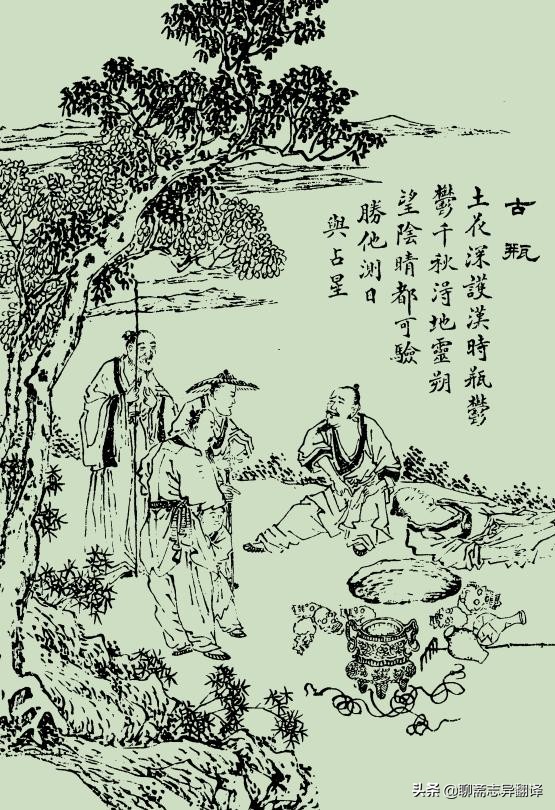 古瓶
土花深護漢時瓶鬱
鬱千秋淂地靈朔
望陰晴都可驗
勝他測日
與占星
头条 @聊斋志异翻译